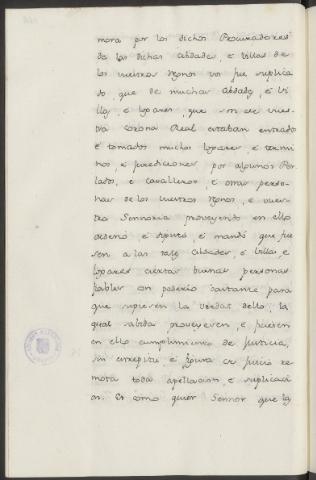 mora por los dichos Procuradores
de las dichas Cibdades, e Villas de
los vuestros Regnos vos fue suplica
do, que de muchas Cibdades, e Vi
llas, e Logares, que son de vues
tra Corona Real estaban entrados
e tomados muchos Logares, e termi
nos, e jurediciones, por algunos Per
lados, e Cavalleros, e otras perso
nas de los vuestros Regnos, e vues
tra Sennoria proveyendo en ello
ordenó, e diputó, e mandó que fue
sen a las tales Cibdades, e Villas, e
Logares ciertas buenas personas
fiables con poderío bastante para
que sopiesen la verdat dello, la
qual sabida proveyesen, e ficiesen
en ello cumplimiento de justicia,
sin estrepitu e figura de juicio re
mota toda apellacion, e suplicaci
on. Et como quier Sennor que los